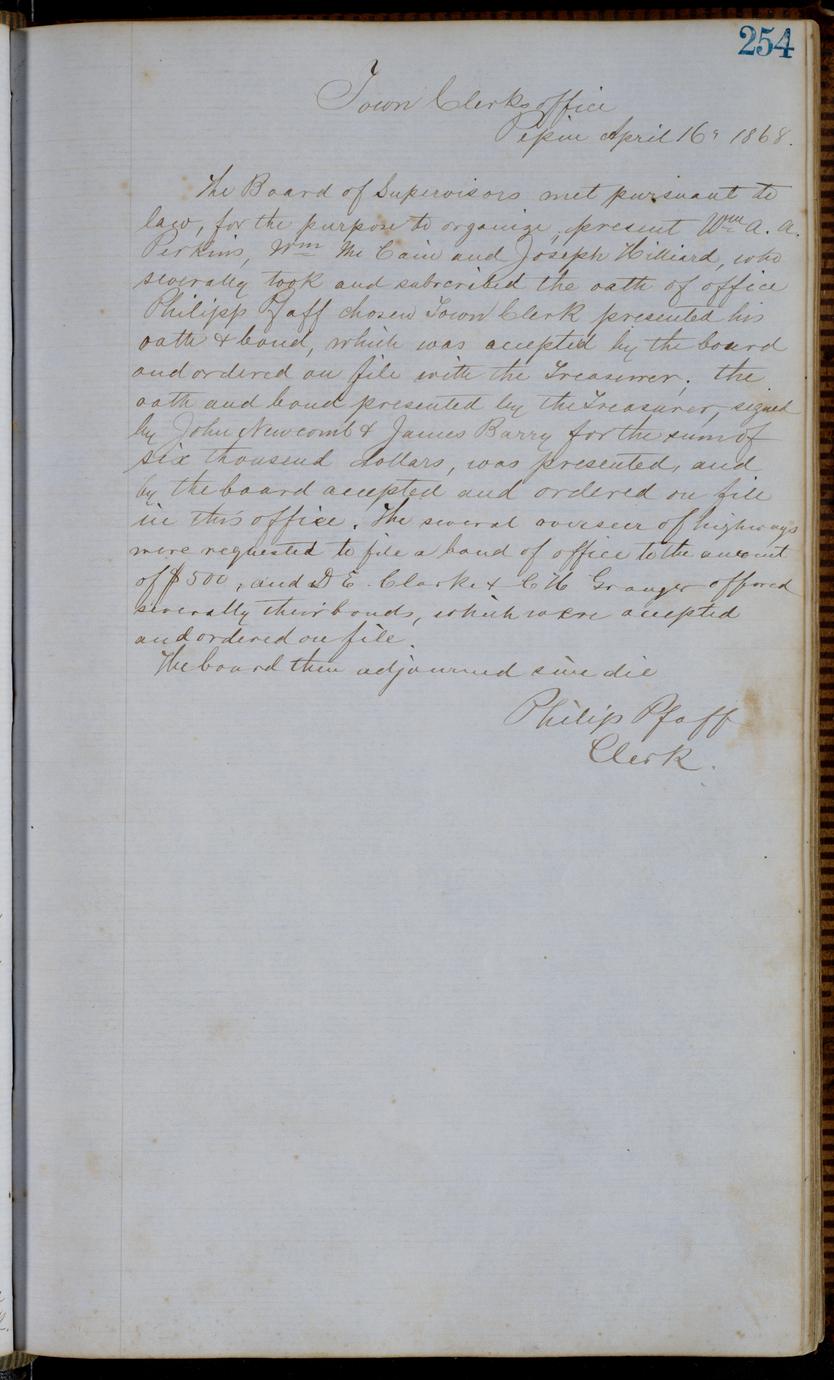 254
Town Clerks office
Pepin April 16th 1868.
The Board of Supervisors met pursuant to
law, for the purpose to organize, present Wm A. A.
Perkins, Wm Mc Cain and Joseph Hilliard, who
severally took and subscribed the oath of office
Philipp Pfaff chosen Town Clerk presented his
oath & bond, which was accepted by the board
and ordered on file with the Treasurer; the
oath and bond presented by the Treasurer, signed
by John Newcomb & James Barry for the sum of
six thousend dollars, was presented, and
by the board accepted and ordered on file
in this office. The several overseer of highways
were requested to file a bond of office to the amount
of $500, and D E. Clarke & C H Granger offered
severally their bonds, which were accepted
and ordered on file.
The board then adjourned sine die
Philip Pfaff
Clerk.